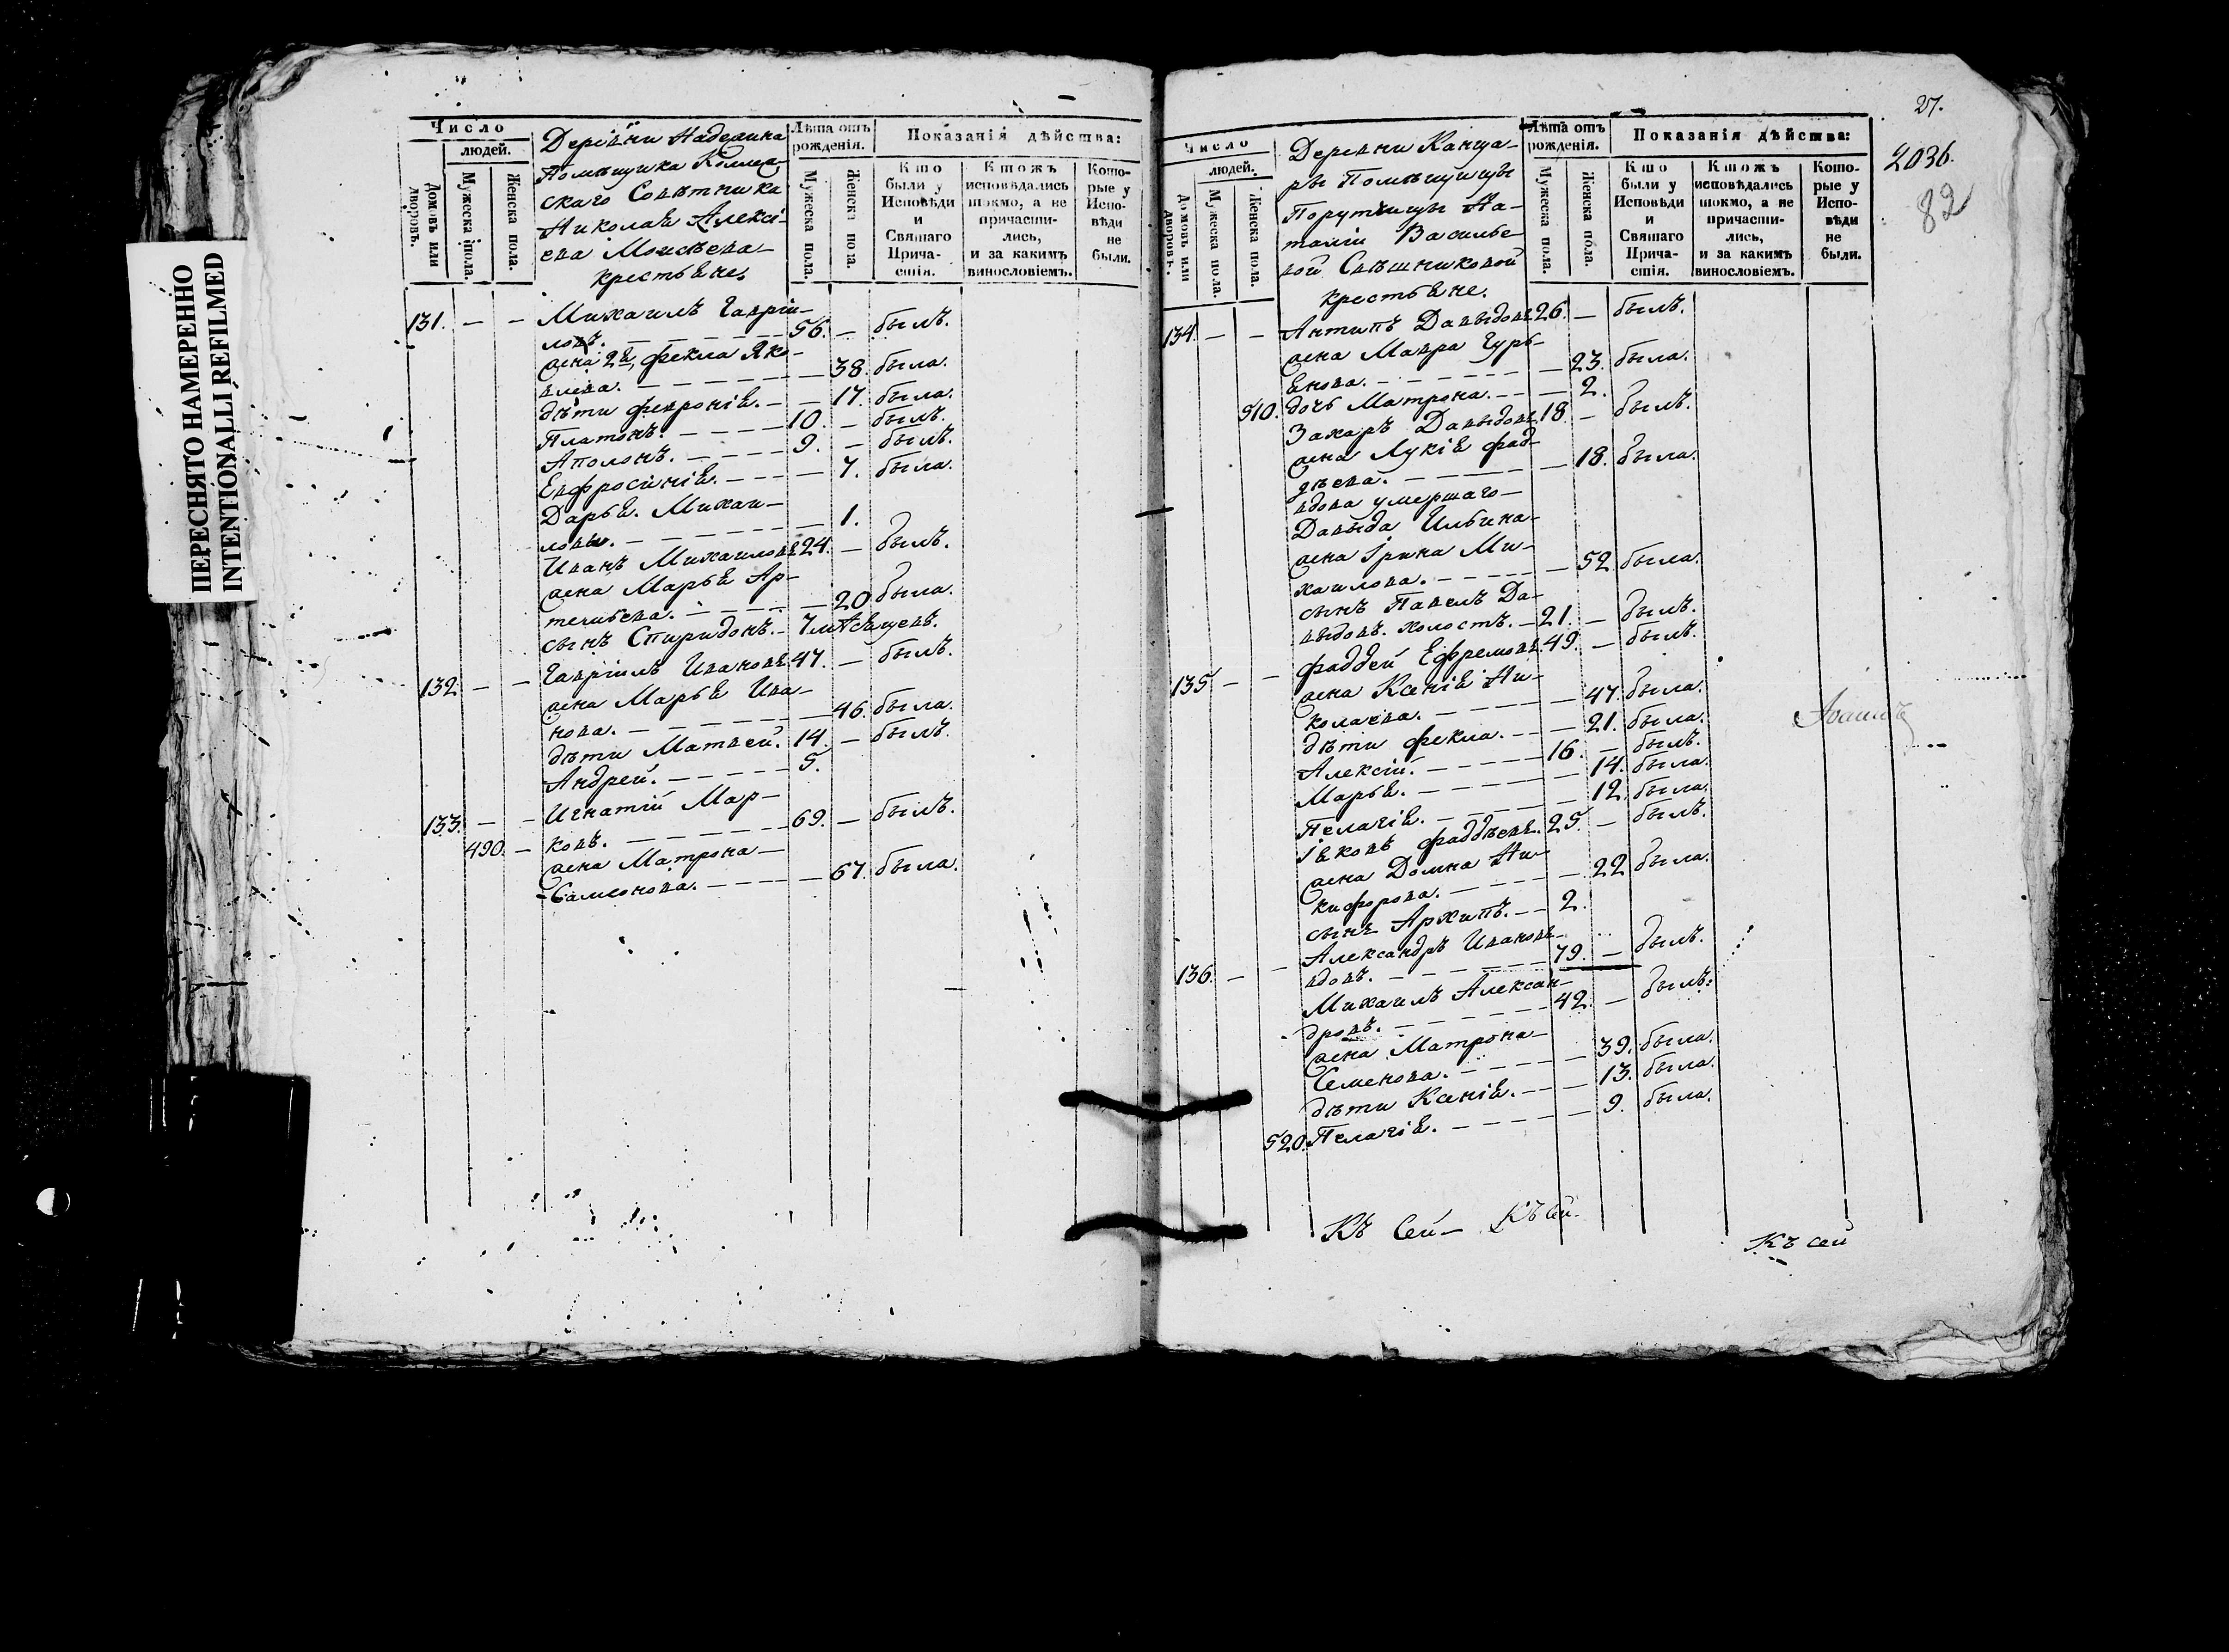 ПЕРЕСНЯТО НАМЕРЕННО
INTENTIONALLI REFILMED
Число
людей.
Домовъ или дворовъ.
Мужеска пола.
Женска пола.
Деревни Наделина
Помѣщика Коллеж-
скаго Совѣтника
Николая Алексѣ-
ева Моисѣева
крестьяне.
Лѣта отъ рожденія.
Мужеска пола.
Женска пола.
Показанія дѣйства:
Кто были у Исповѣди и Святаго Прича-стія.
Ктожъ исповѣдались токмо, а не причасти-лись, и за какимъ винословіемъ.
Кото-рые у Испо-вѣди не были.
131. — — Михаилъ Гаврiи-
ловъ. 56. — былъ.
жена 2я, Фекла Яко-
влева. — 38. была.
дѣти Февронія. — 17. была.
Платонъ. 10. — былъ.
Аполонъ. 9. — былъ.
Евфросинія. — 7. была.
Дарья. Михаи-
ловы. — 1.
Иванъ Михаиловъ 24. — былъ.
жена Марья Ар-
темьева. — 20 была.
сынъ Спиридонъ. 7 мѣсяцевъ.
132 — — Гавріилъ Ивановъ 47. — былъ.
жена Марья Ива-
нова. — 46. была.
дѣти Матвей. 14. — былъ.
Андрей. 5.
133. — — Игнатій Мар-
490. — ковъ. 69. — былъ.
жена Матрона
Самсонова. — 67. была.
27.
2036.
82
Число
людей.
Домовъ или дворовъ.
Мужеска пола.
Женска пола.
Деревни Канца-
ры Помѣщицы
Порутчицы На-
таліи Василье-
вой Свѣшниковой
крестьяне.
Лѣта отъ рожденія.
Мужеска пола.
Женска пола.
Показанія дѣйства:
Кто были у Исповѣди и Святаго Прича-стія.
Ктожъ исповѣдались токмо, а не причасти-лись, и за какимъ винословіемъ.
Кото-рые у Испо-вѣди не были.
134. — — Антипъ Давыдовъ 26. — былъ.
жена Мавра Гурь-
янова. — 23. была.
510. дочь Матрона. — 2.
Захаръ Давыдовъ 18 — былъ.
жена Лукія Фад-
дѣева. — 18. была.
вдова умершаго
Давыда Ильина
жена Ірина Ми-
хаилова. — 52 была.
сынъ Павелъ Да-
выдовъ. холостъ. — 21. — былъ.
135 — — Фаддей Ефремовъ 49. — былъ.
жена Ксенія Ни-
колаева. — 47. была.
дѣти Фекла. — 21. была.
Алексій. 16. — былъ.
Марья. — 14. была.
Пелагія. — 12. была.
Іяковъ Фаддѣевъ. 25. — былъ.
жена Домна Ни-
кифорова. — 22 была.
сынъ Архипъ. 2.
136. — — Александръ Ивановъ
вдовъ. 79. — былъ.
Михаилъ Алексан-
дровъ. 42. — былъ.
жена Матрона
Семенова. — 39. была.
дѣти Ксенія. — 13. была.
520. Пелагія. — 9. была.
Къ Сей — Къ Сей
Къ сей